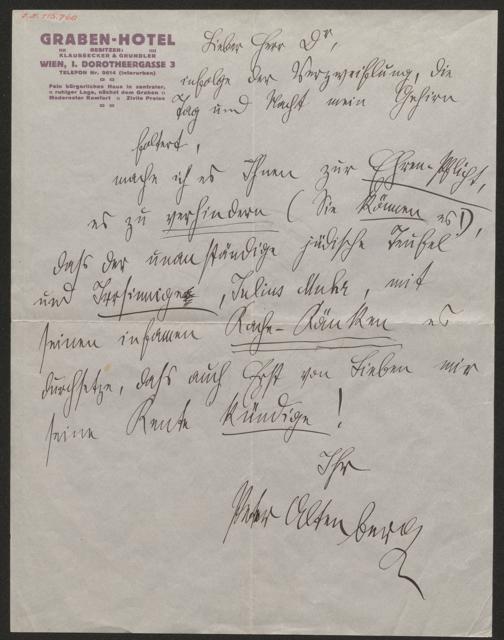 GRABEN-HOTEL
BESITZER:
KLAUSECKER & GRUNDLER
WIEN, I. DOROTHEERGASSE 3
TELEPON Nr. 9614 (interurban)
Fein bürgerliches Haus in zentraler,
ruhiger Lage, nächst dem Graben
Modernster Komfort Zivile Preise
Lieber Herr Dr,
infolge der Verzweiflung, die
Tag und Nacht mein Gehirn
foltert,
mache ich es Ihnen zur Ehren-Pflicht,
es zu verhindern (Sie können es!),
dass der unanständige jüdische Teufel
und Irrsinnige, Julius Muhr, mit
seinen infamen Rache-Ränken es
durchsetze, dass auch von Lieben mir
seine Rente kündige!
Ihr
Peter Altenberg